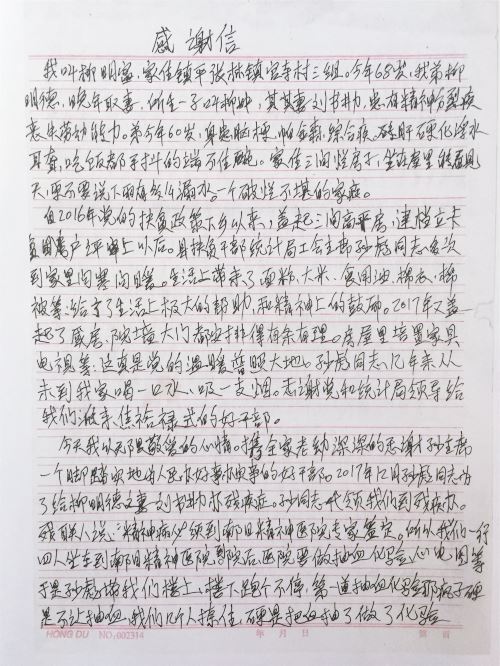 感谢信
我叫柳明富,家住镇平张林镇官寺村三组。今年68岁,我弟柳
明德,晚年取妻,所生一子叫柳,其妻刘书,患有精神分裂疾
患失劳动能力。弟今年60岁,身患脑梗、帕金森综合症、硬化
耳聋,吃饭都手抖的端不住碗。家住三间烂房子,坐在屋里能看见
天,更不要说下雨有多么漏水。一个破烂不堪的家庭。
自2016年党的扶贫政策下乡以来,盖起三间高平房,建档立卡
贫困户以后。县扶贫干部统计局工会主席孙彪同志,多次
到家里问寒问暖。生活上带来了面粉、大米、食用油、棉衣、棉
被等,给予了生活上极大的帮助,和精神上的鼓励。2017年又盖
起了厨房,院墙大门都安排得有条有理。房屋里培置家具
电视等,这真是党的温暖普照大地。孙彪同志,几年来从
未到我家喝一口水,吸一支烟。感谢党和统计局领导给
我们派来焦裕禄式的好干部。
今天我以无限敬爱的心情。携全家老幼深深的感谢孙主席
一个脚踏实地为人民办好事办实事的好干部。2017年12月孙彪同志为
了给柳明德之妻刘书办残疾症。孙同志代领我们到残疾办。
残联人说:精神病必须到南阳精神医院专家鉴定。所以我们一行
四人坐车到南阳精神医院,到院后,医院要做抽血化验、心电图等
于是孙彪带我们楼上、楼下跑个不停,第一道抽血化验那疯子硬
是不让抽血,我们几人揍住,硬是把血抽了做了化验
HONG DU NO:002314 年 月 日 第 页